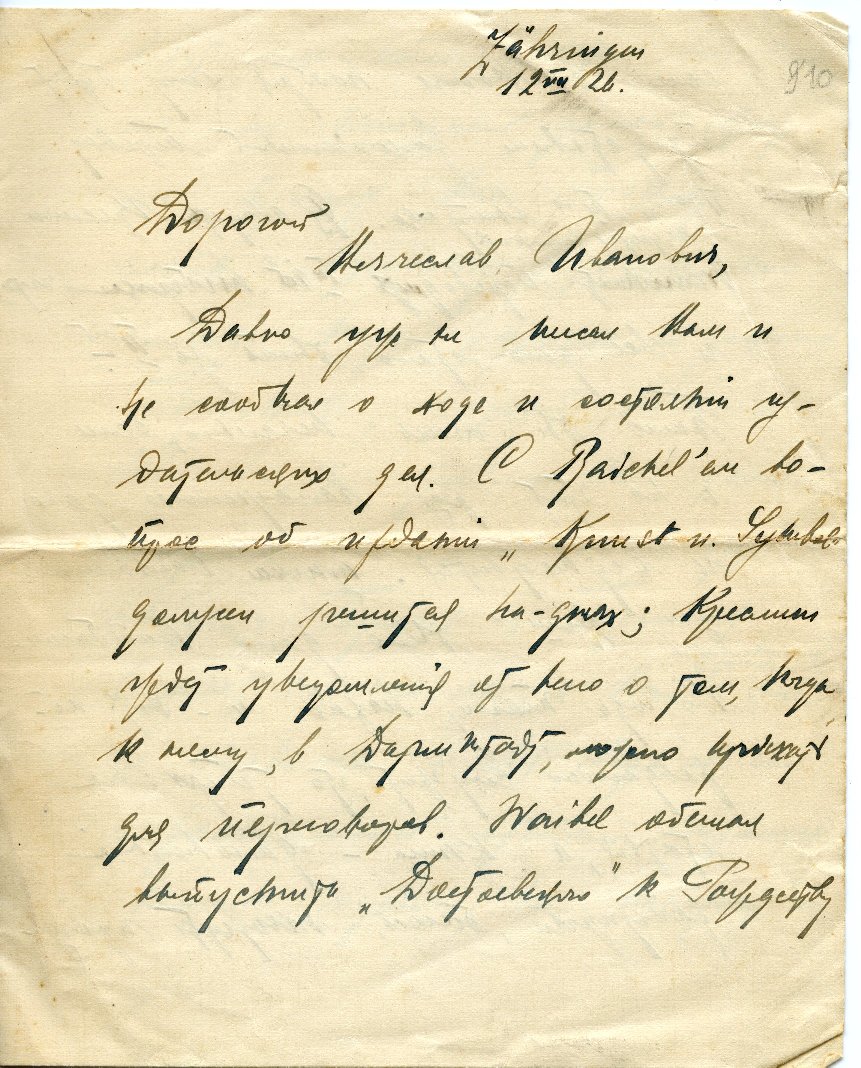 Zähringen
12 VIII 26.
910
Дорогой
Вячеслав Иванович,
Давно уже не писал Вам и
не сообщал о ходе и состоянiи из-
дательских дел. С Raichel'ем во-
прос об изданiи „Kunst u. Symbol
должен решится на-днях; Креслинг
ждет уведомленiя от него о том, когда
к нему, в Дармштадт, можно прiехать
для переговоров. Waibel обещал
выпустить „Достоевского" к Рождеству